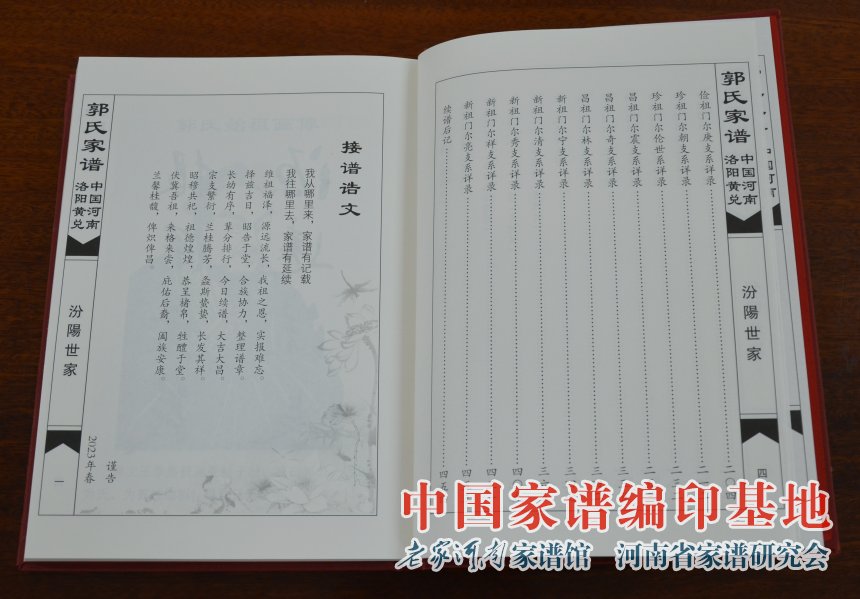 郭氏家谱
中国河南
洛阳黄兑
汾陽世家
四
俭祖门尔庚支系详录 二〇四
珍祖门尔朝支系详录
珍祖门尔伦世系详录
昌祖门尔震支系详录
昌祖门尔奇支系详录
昌祖门尔林支系详录
新祖门尔宁支系详录
新祖门尔清支系详录
新祖门尔秀支系详录
新祖门尔祥支系详录
新祖门尔亮支系详录
续谱后记
接谱诰文
我从哪里来，家谱有记载
我往哪里去，家谱有延续
维祖福泽，源远流长，我祖之恩，实报难忘。
择兹吉日，昭告于堂，合族协力，整理谱章。
长幼有序，辈分排行，今日续谱，大吉大昌。
宗支繁衍，兰桂腾芳，螽斯蛰蛰，长发其祥。
昭穆共祀，祖德煌煌，恭呈楮帛，牲醴于堂。
伏冀吾祖，来格来尝，庇佑后裔，阖族安康。
兰馨桂馥，俾炽俾昌。
谨告
2023年春
郭氏家谱
中国河南
洛阳黄兑
汾陽世家
一
中国家谱编印基地
老家河南家谱馆 河南省家谱研究会